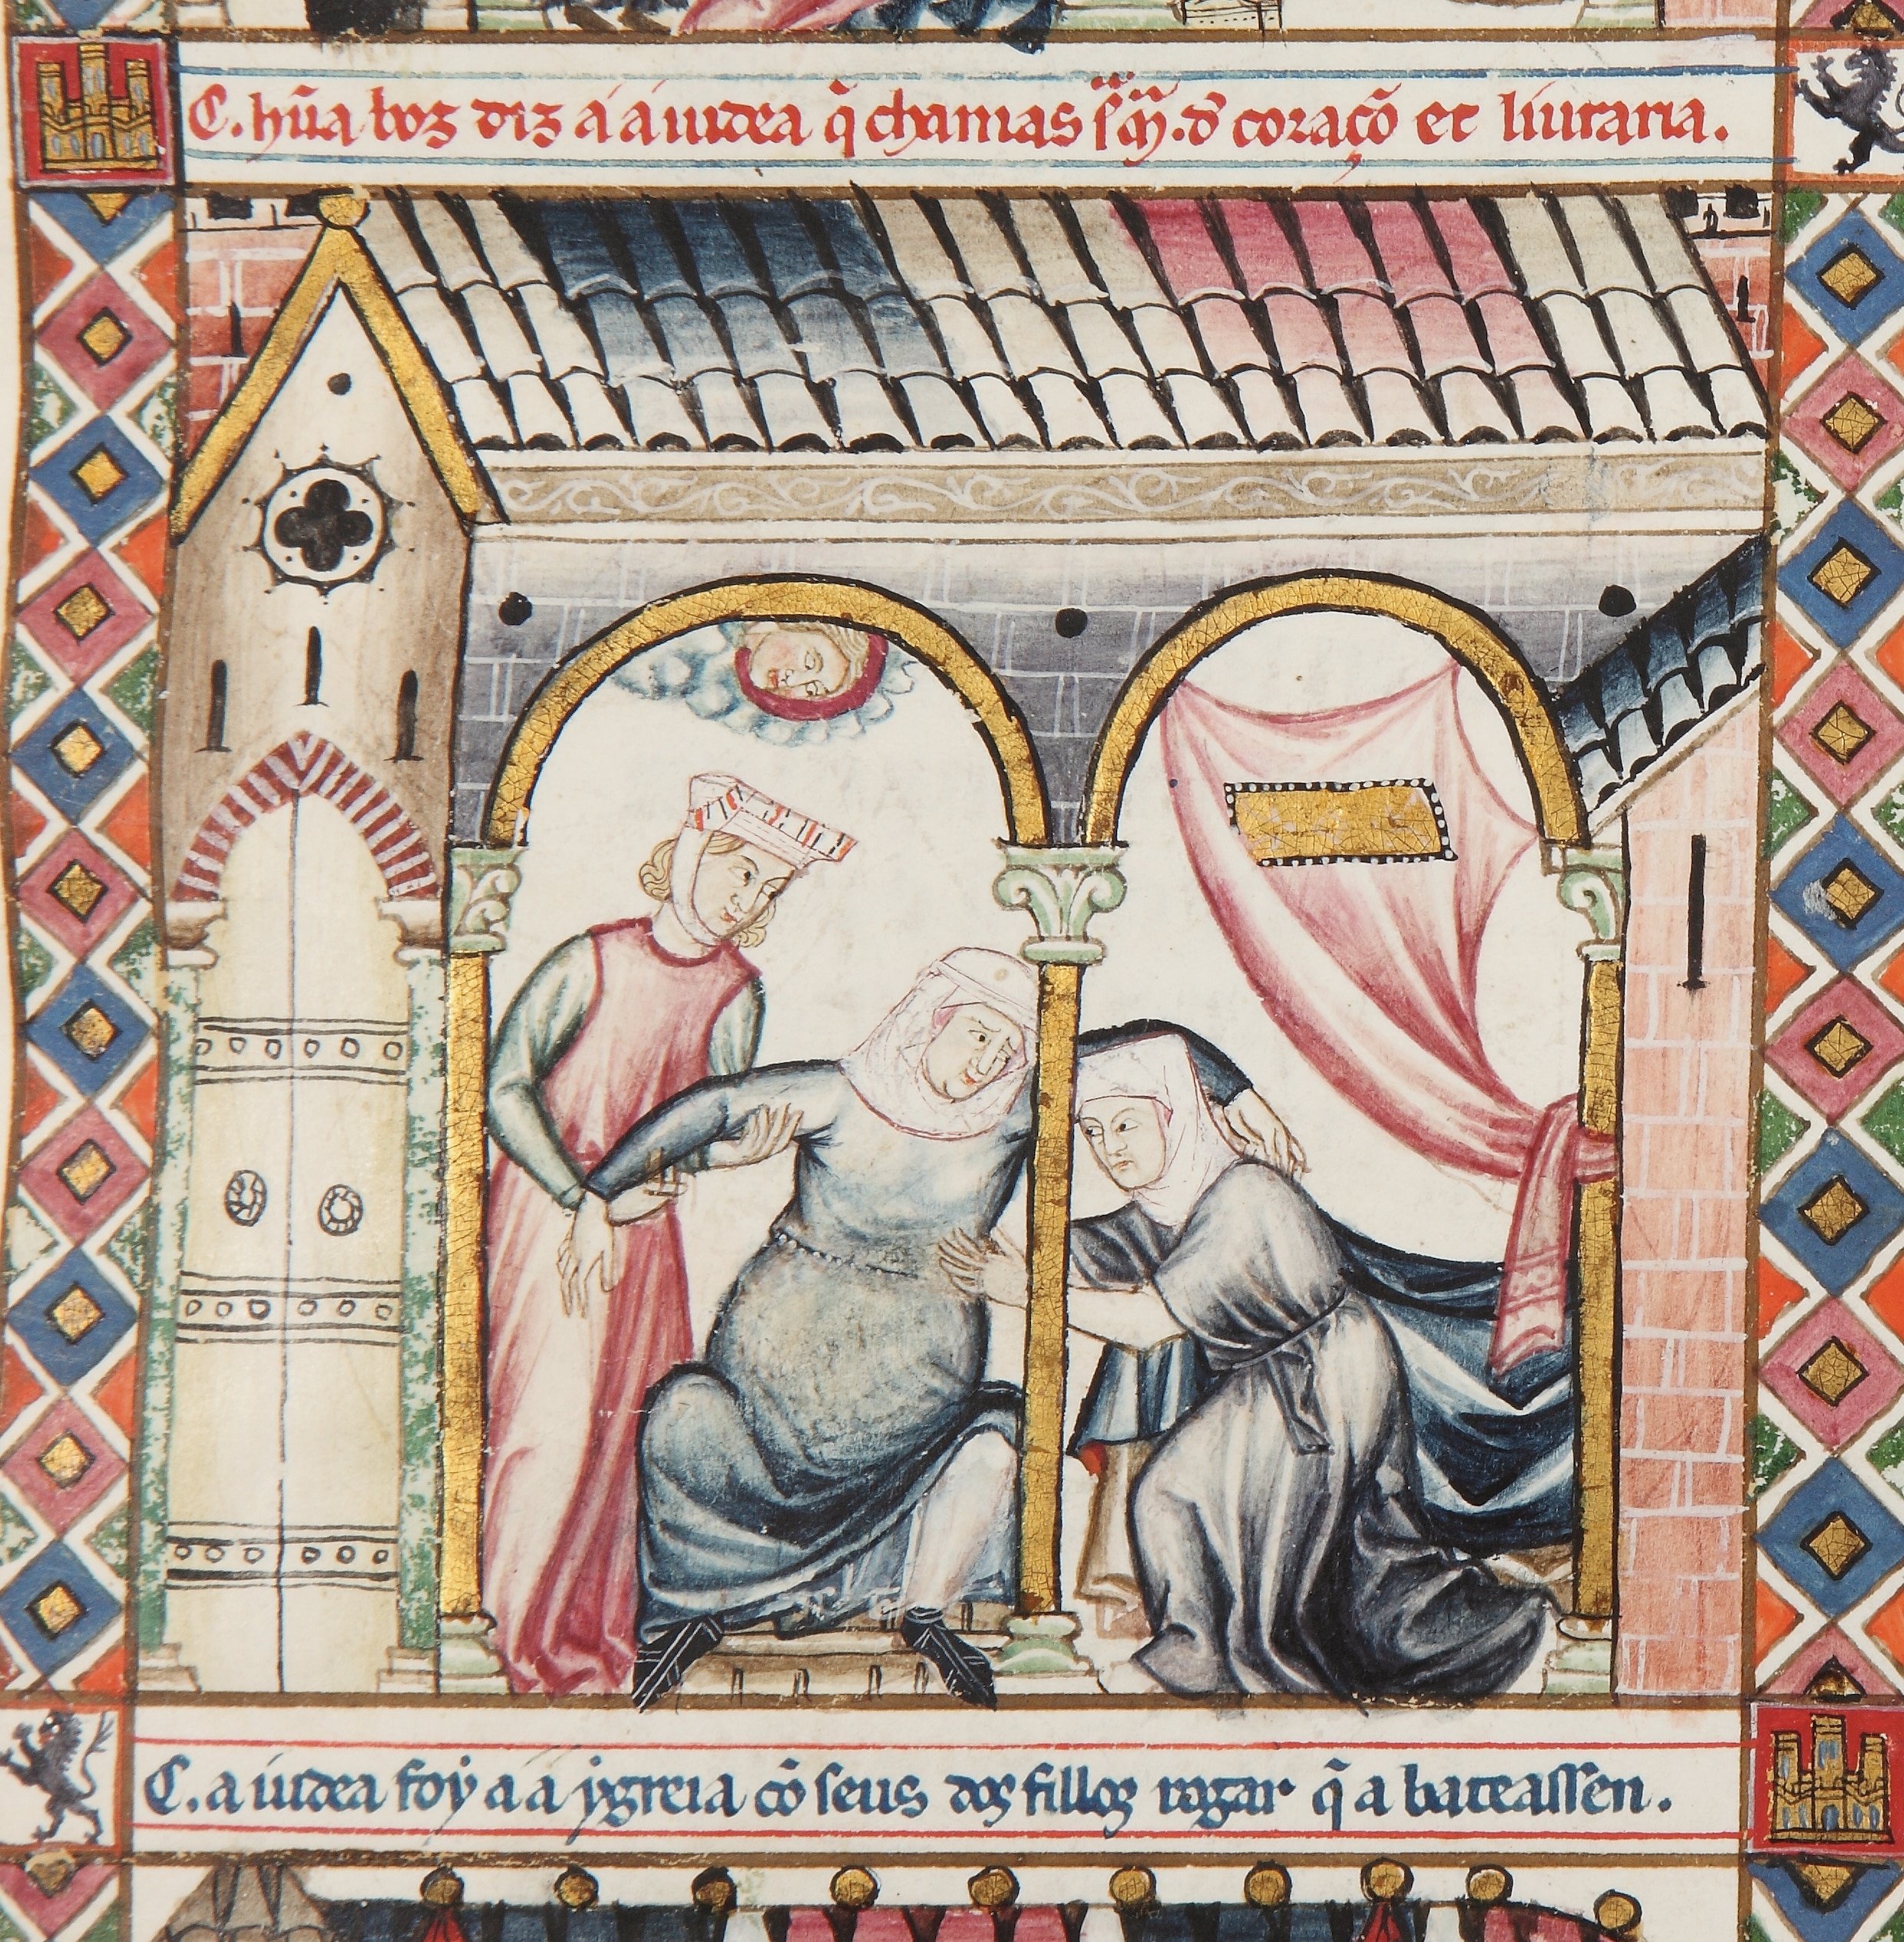 C. hũa boz diz a a iudea q̃ chamas s̃ m̃. d' coraçõ et liuraria.
C. a iudea foy a a ygreia cõ seus dos fillos rogar q̃ a bateassen.